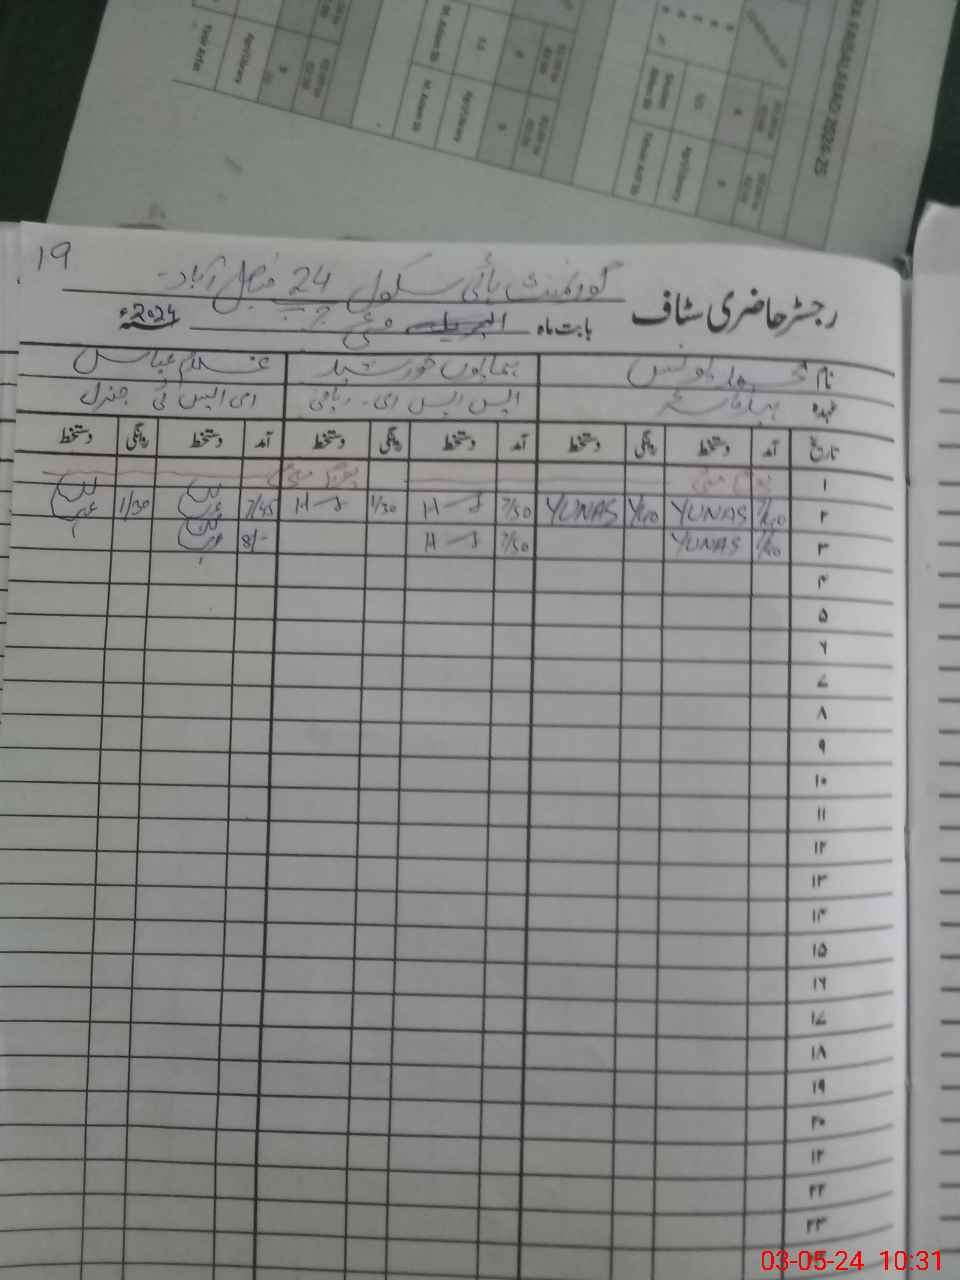 19
گورنمنٹ ہائی سکول 24 ج ب فیصل آباد
رجسٹر حاضری سٹاف
بابت ماہ اپریل مئی 2024ء
نام محمد یونس ہمایوں خورشید غلام عباس
عہدہ ہیڈ ماسٹر ایس ایس ای ۔ ریاضی ای ایس ٹی جنرل
تاریخ آمد دستخط روانگی دستخط آمد دستخط روانگی دستخط آمد دستخط روانگی دستخط
۱ یوم مئی یوم مئی
۲ 7/40 YUNAS 1/40 YUNAS 7/50 H 1/30 H 7/45 عباس 1/30 عباس
۳ 7/40 YUNAS 7/50 H 8/- عباس
۴
۵
۶
۷
۸
۹
۱۰
۱۱
۱۲
۱۳
۱۴
۱۵
۱۶
۱۷
۱۸
۱۹
۲۰
۲۱
۲۲
۲۳
03-05-24 10:31